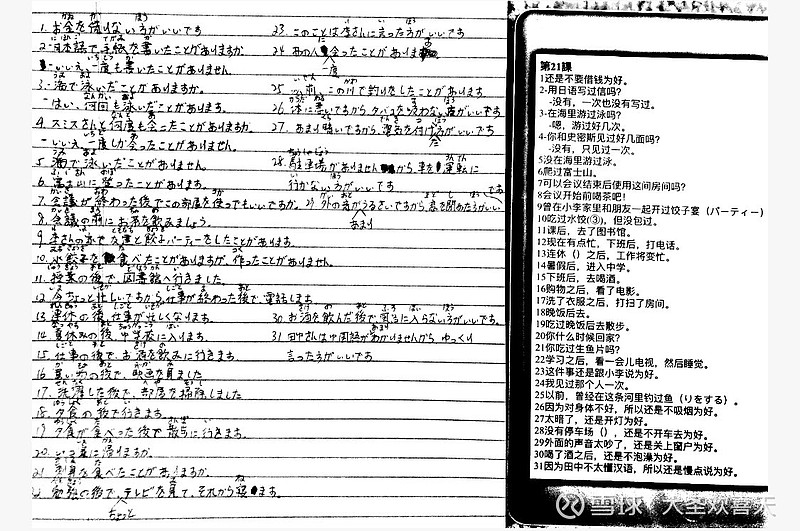 1. お金を借りない方がいいです
2. 日本語で手紙を書いたことがありますか.
- いいえ, 一度も書いたことがありません.
3. 海で泳いだことがありますか.
- はい, 何回も泳いだことがあります.
4. スミスさんと何度も会ったことがありますか.
- いいえ. 一度しか会ったことがありません.
5. 海で泳いだことがありません.
6. 富士山に登ったことがあります.
7. 会議が終わった後でこの部屋を使ってもいいですか.
8. 会議の前にお茶を飲みましょう.
9. 李さんの家で友達と餃子パーティーをしたことがあります.
10. 水餃子を食べたことがありますが, 作ったことがありません.
11. 授業の後で, 図書館へ行きました.
12. 今ちょっと忙しいですから, 仕事が終わった後で, 電話します.
13. 連休の後, 仕事が忙しくなります.
14. 夏休みの後, 中学校に入ります.
15. 仕事の後で, お酒を飲みに行きます.
16. 買い物の後で, 映画を見ました
17. 洗濯した後で, 部屋を掃除しました
18. 夕食の後で行きます.
19. 夕食が食べった後で散歩に行きます.
20. いつ家に帰りますか.
21. 刺身を食べたことがありますか.
勉強の後で, テレビを見て, それから寝ます.
ちょっと
23. このことは李さんに言った方がいいです
24. あの人 会ったことがあります
一度
25. 以前, この川で釣りをしたことがあります
26. 体に悪いですから, タバコを吸わない方がいいです
27. あまり暗いですから, 電気を付け方がいいです
28. 駐車場がありませんから, 車を運転に
行かない方がいいです
29. 外の音がうるさいですから, 窓を閉めた方がいい
です
あまり
30. お酒を飲んだ後で, 風呂に入らない方がいいです.
31. 田中さんは中国語がわかりませんから, ゆっくり
あまり
言った方がいいです
第21課
1还是不要借钱为好。
2-用日语写过信吗？
-没有，一次也没有写过。
3-在海里游过泳吗？
-嗯，游过好几次。
4-你和史密斯见过好几面吗？
-没有，只见过一次。
5没在海里游过泳。
6爬过富士山。
7可以会议结束后使用这间房间吗？
8会议开始前喝茶吧！
9曾在小李家里和朋友一起开过饺子宴（パーティー）
10吃过水饺(③)，但没包过。
11课后，去了图书馆。
12现在有点忙，下班后，打电话。
13连休（）之后，工作将变忙。
14暑假后，进入中学。
15下班后，去喝酒。
16购物之后，看了电影。
17洗了衣服之后，打扫了房间。
18晚饭后去。
19吃过晚饭后去散步。
20你什么时候回家？
21你吃过生鱼片吗？
22学习之后，看一会儿电视，然后睡觉。
23这件事还是跟小李说为好。
24我见过那个人一次。
25以前，曾经在这条河里钓过鱼（りをする）。
26因为对身体不好，所以还是不吸烟为好。
27太暗了，还是开灯为好。
28没有停车场（），还是不开车去为好。
29外面的声音太吵了，还是关上窗户为好。
30喝了酒之后，还是不泡澡为好。
31因为田中不太懂汉语，所以还是慢点说为好。
雪球：大全欢喜天